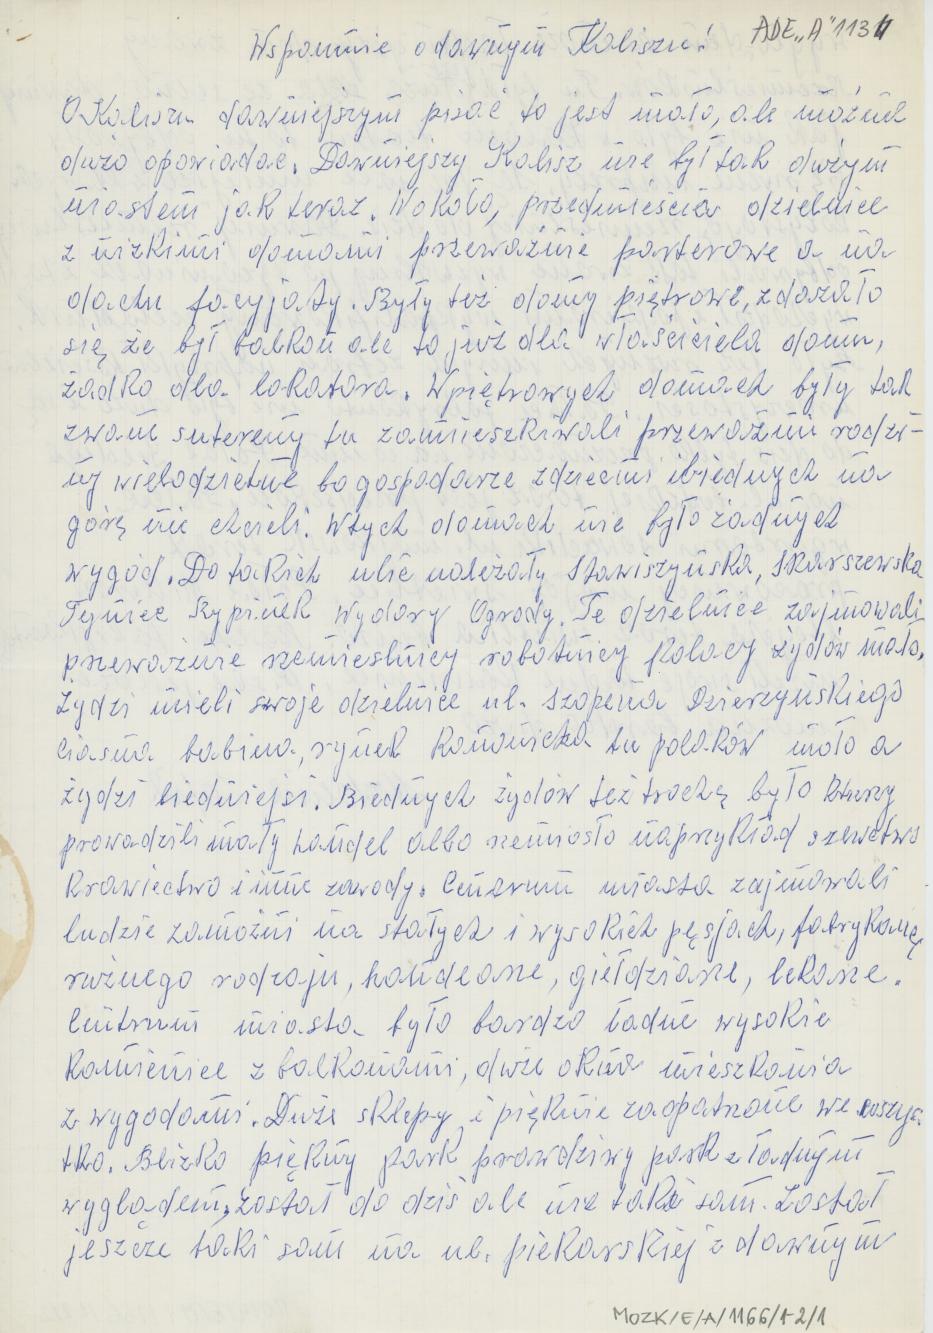 ADE„A"113
Wspomnie o dawnym Kaliszu!
O Kaliszu dawniejszym pisać to jest mało, ale możnae
dużo opowiadać. Dawniejszy Kalisz nie był tak dużym
miastem jak teraz. Wokoło, przedmieścia dzielnice
z nizkimi domami przeważnie parterowe a na
dachu facyjaty. Były też domy piętrowe, zdażało
się że był balkon ale to już dla właściciela domu,
żadko dla lokatora. Wpiętrowych domach były tak
zwane sutereny tu zamieszkiwali przeważnie rodzi-
ny wielodzietne bo gospodarze zdziećmi biednych na
górę nie chcieli. Wtych domach nie było żadnych
wygód. Do takich ulic należały Stawiszyńska, Skarszewska
Tyniec Rypinek Wydory Ogrody. Te dzielnice zajmowali
przeważnie rzemieslnicy robotnicy Polacy żydów mało.
Żydzi mieli swoje dzielnice ul. Szopena Dzierzyńskiego
Ciasna babina, rynek Kanonicka tu polaków mało a
żydzi biedniejsi. Biednych żydów też trochę było którzy
prowadzili mały handel albo rzemiosło naprzykład szewctwo
Krawiectwo i inne zawody. Centrum miasta zajmowali
ludzie zamożni na stałych i wysokich pęsjach, fabrykanci
rużnego rodzaju, handlarze, giełdziarze, lekarze.
Centrum miasta było bardzo ładne wysokie
Kamienice z balkonami, duże okna mieszkania
z wygodami. Duże sklepy i pięknie zaopatrzone we wszys-
tko. Blizko piękny park prawdziwy park z ładnym
wyglądem, został do dziś ale nie taki sam. Został
jeszcze taki sam na ul. piekarskiej z dawnym
MOZK/E/A/1166/1-2/1